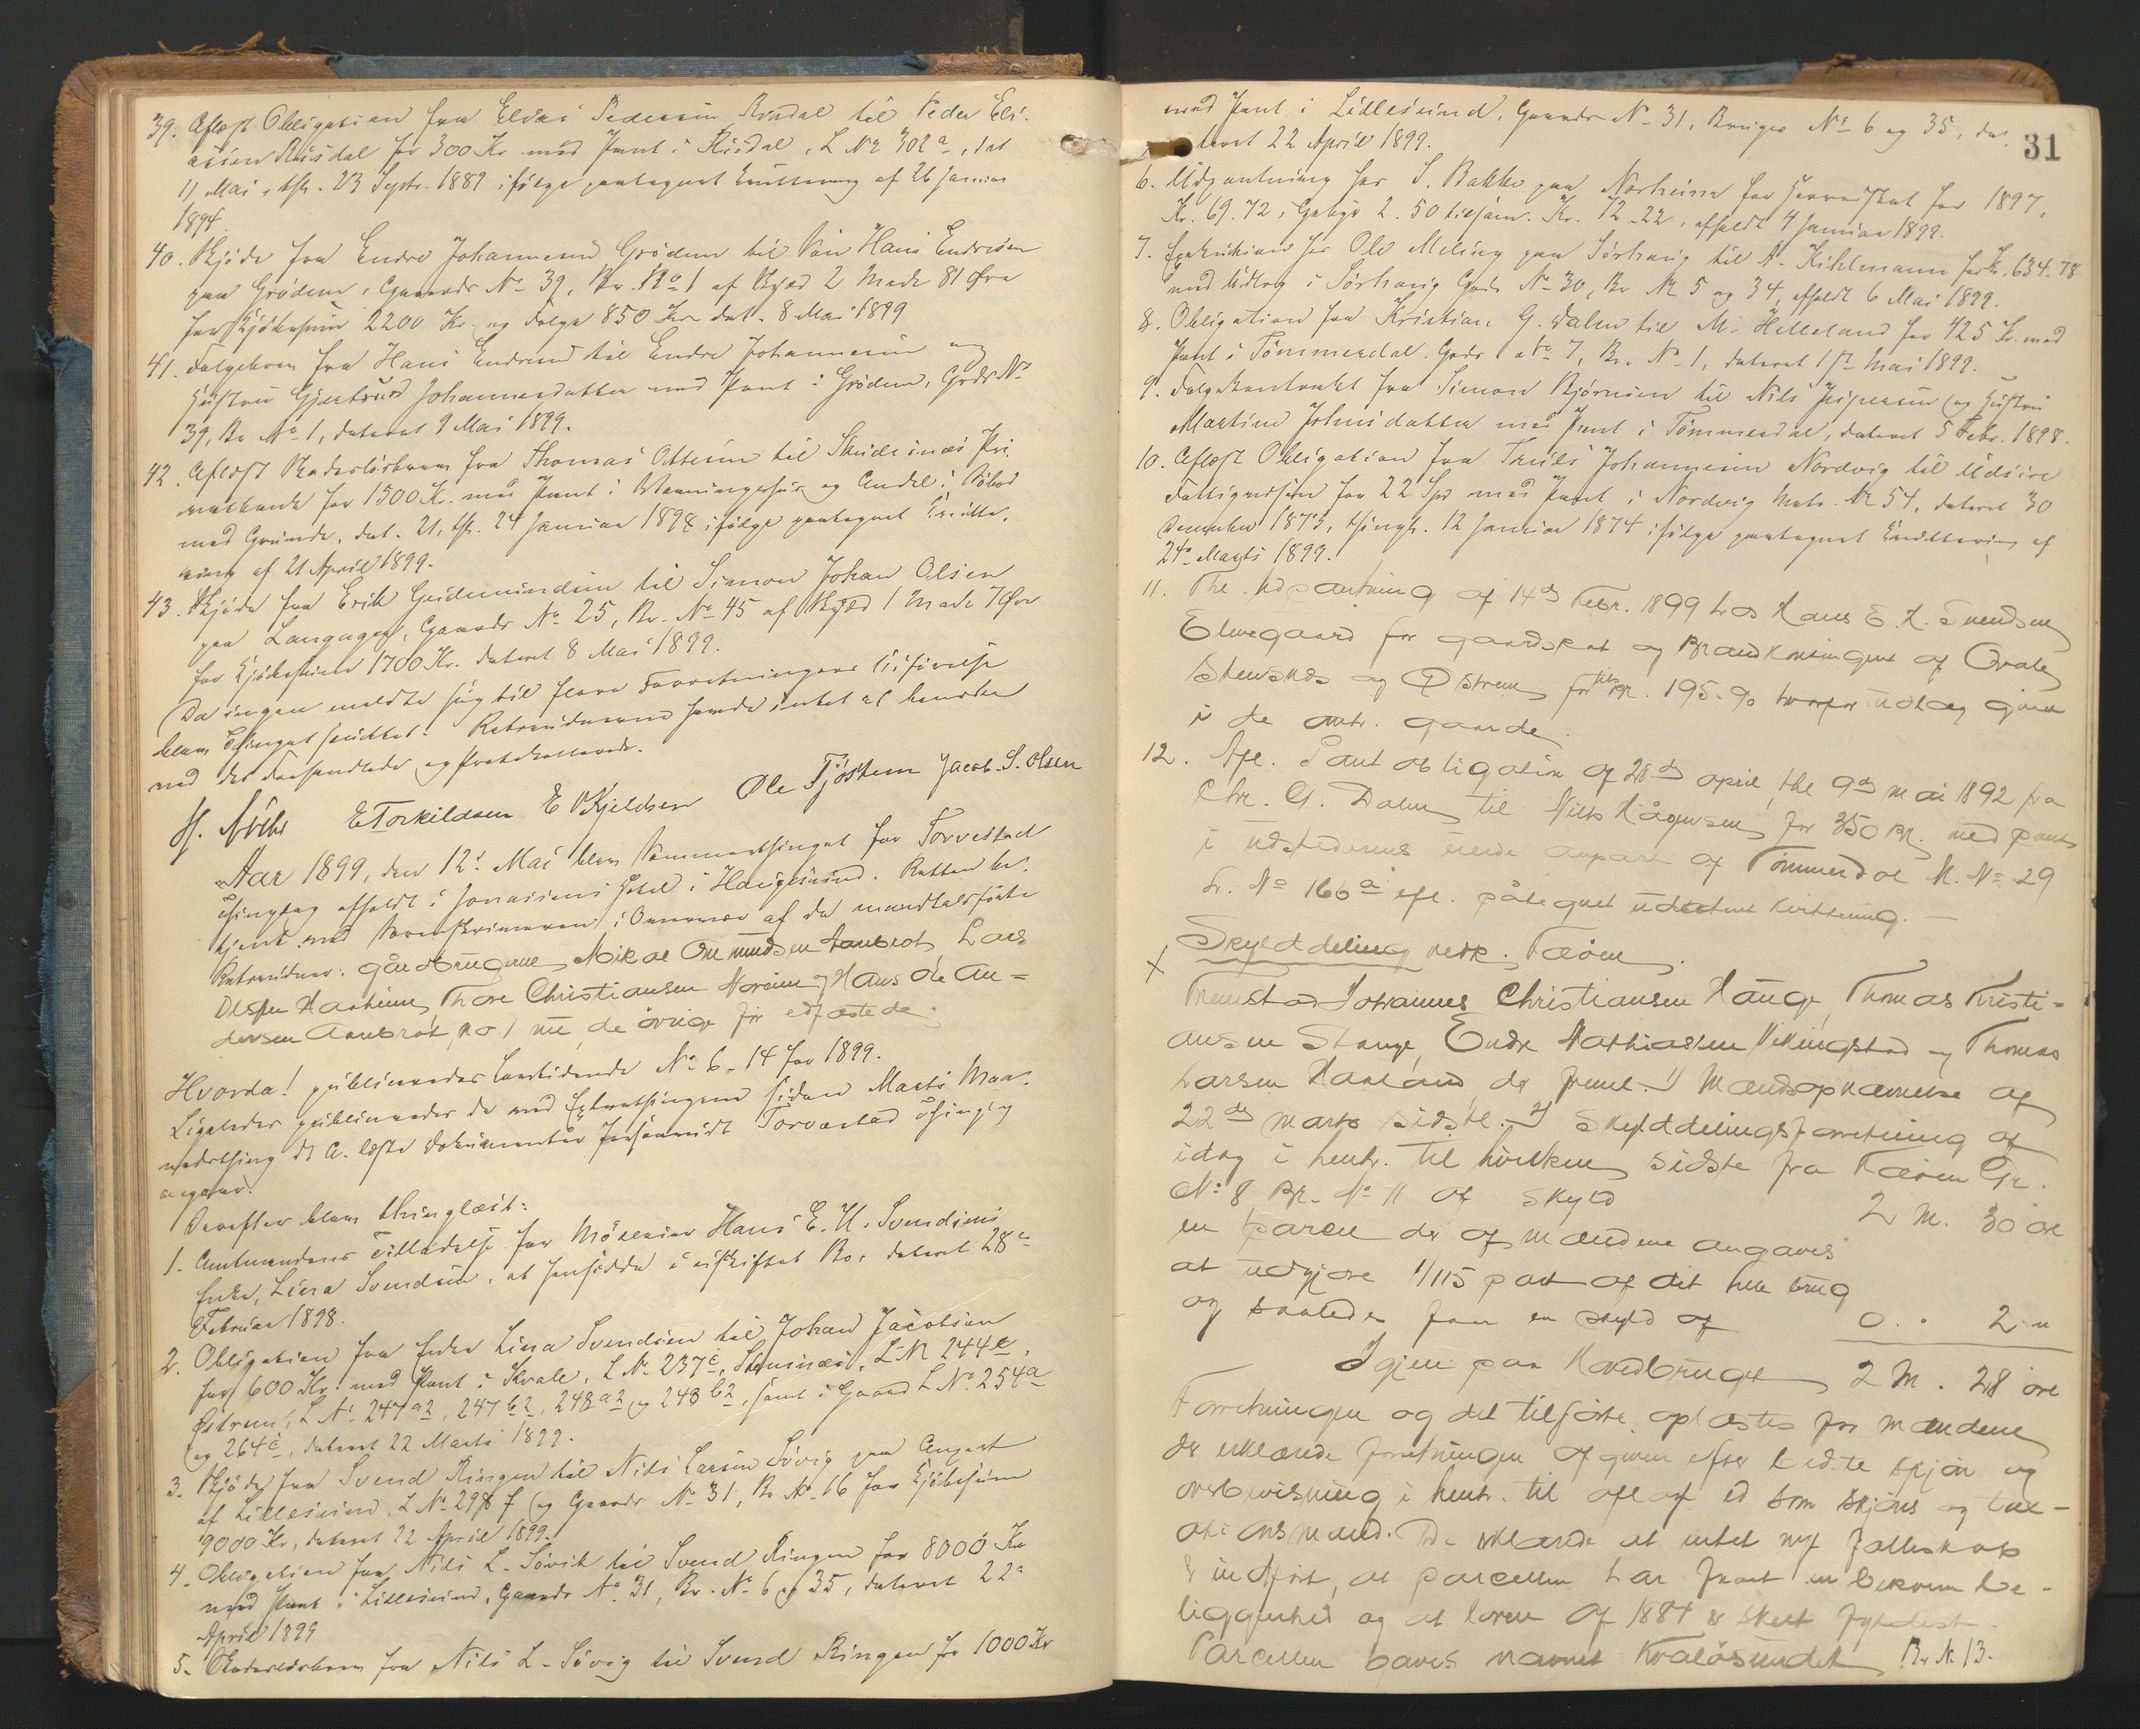 39. Aflæst Obligation fra Elias Pedersen Risdal til Peder Eli-
assen Risdal for 300 Kr. med Pant i Risdal, L No 302a, dat
11 Mai, thl. 23 Septr. 1889 ifølge paategnet Kvittering af 26 Januar
1894.
40. Skjøde fra Endre Johannesen Grødem til Søn Hans Endresen
paa Grødem, Gaards No 39, Br. No 1 af Skyld 2 Mark 81 Øre
for Kjøbesum 2200 Kr. og Folge 850 Kr. dat. 8 Mai 1899
41. Folgebrev fra Hans Endresen til Endre Johannesen og
Hustru Gjertrud Johannesdatter med Pant i Grødem, Grds No
39, Br. No 1, dateret 9 Mai 1899.
42. Aflæst Skadesløsbrev fra Thomas Ottesen til Skudesnæs Pri-
vatbank for 1500 Kr. med Pant i Vaaningshus og Andel i Søbod
med Grunde, dat. 21, thl. 24 Januar 1898 ifølge paategnet Kvitte-
ring af 21 April 1899.
43. Skjøde fra Erik Gudmundsen til Simon Johan Olsen
paa Langager, Gaards No 25, Br. No 45 af Skyld 1 Mark 7 Øre
for Kjøbesum 1700 Kr. dateret 8 Mai 1899.
Da ingen meldte sig til flere Forretningers Udførelse
blev Thinget sluttet. Retsvidnerne havde intet at bemærke
ved det Forhandlede og Protokollerede.
H. Møhr ETorkildsen E Kjeldsen Ole Tjøstem Jacob. S. Olsen
Aar 1899, den 12. Mai blev Sommerthinget for Torvestad
Thinglag afholdt i Jonassens Hotel i Haugesund. Retten be-
tjent med Sorenskriveren i Overvær af de mandtalførte
Retsvidner: gårdbrugerne Mikal Omundsen Aanbrot, Lars
Olsen Haaheim, Thore Christiansen Noreim og Hans Ole An=
dersen Aanbrot, no 1 nu, de øvrige før edfæstede.
Hvorda! publiceredes Lovtidende No 6-14 for 1899.
Ligeledes publiceredes de ved Extrathingene siden Marts Maa-
nedsthing d. A. læste Dokumenter forsaavidt Torvestad Thinglag
angaar.
Derefter blev thinglæst:
1. Amtmandens Tilladelse for Møller Hans E. H. Svendsens
Enke, Lina Svendsen, at hensidde i uskiftet Bo, dateret 28de
Februar 1898.
2. Obligation fra Enke Lina Svendsen til Johan Jacobsen
for 600 Kr. med Pant i Kvale, L No 237c, Stensnæs, L No 244e,
Østrem, L No 247a2, 247b2, 248a2 og 248b2, samt i Gaard L No 254a
og 264c, dateret 22 Marts 1899.
3. Skjøde fra Svend Ringen til Nils Larsen Søvig paa Anpart
af Lillesund, L No 298f og Gaards No 31, Br. No 16 for Kjøbesum
9000 Kr, dateret 22 April 1899.
4. Obligation fra Nils L. Søvik til Svend Ringen for 8000 Kr
med Pant i Lillesund, Gaards No 31, Br. No 6 og 35, dateret 22de
April 1899
5. Skadesløsbrev fra Nils L. Søvig til Svend Ringen for 1000 Kr
31
med Pant i Lillesund, Gaards No 31, Bruges No 6 og 35, da-
teret 22 April 1899.
6. Udpantning hos S. Bakke paa Norheim for Herredskat for 1897,
Kr. 69.72, Gebyr 2.50 tilsam. Kr. 72.22, afholdt 4 Januar 1899.
7. Exekution hos Ole Meling paa Sørhaug til A. Kihlmann for Kr. 634.78
med Udlæg i Sørhaug Grds No 30, Br No 5 og 34, afholdt 6 Mai 1899.
8. Obligation fra Kristian G. Dalen til M. Helleland for 425 Kr. med
Pant i Tømmerdal. Grds No 7, Br. No 1, dateret 1ste Mai 1899.
9. Folgekontrakt fra Simon Bjørnsen til Nils Jespersen og Hustru
Martine Johnsdatter med Pant i Tømmerdal, dateret 5 Febr. 1898.
10. Aflæst Obligation fra Truls Johannesen Nordvig til Udsire
Fattigvæsen for 22 Spd med Pant i Nordvig Matr. No 54, dateret 30
December 1873, thingl. 12 Januar 1874 ifølge paategnet Kvittering af
24de Marts 1899.
11. Thl. Udpantning af 14de Febr. 1899 hos Hans E. H. Svendsen
Elvegaard for gaardskat og Brandkontingent af Qvale,
Stensnæs og Østrem for tils Kr. 195.90 hvorfor udlæg givet
i de omh. gaarde.
12. Afl. Pantobligation af 28de april, thl 9de mai 1892 fra
Chr. G. Dalen til Nils Hågensen for 350 Kr. med pant
i udstederens eiende anpart af Tømmerdal M. No 29
L. No 166a ifl. påtegnet udateret kvittering. —
x Skylddeling vedk. Feøen.
Fremstod Johannes Christiansen Hauge, Thomas Kristi-
ansen Stange, Endre Mathiassen Vikingstad og Thomas
Larsen Haaland, der freml. 1) Mændsopnævnelse af
22de marts sidstl. 2) Skylddelingsforretning af
idag i henh. til hvilken sidste fra Feøen Gr.
No 8 Br. No 11 af Skyld 2 M. 30 øre
en parcel der af mændene angaves
at udgjøre 1/115 part af det hele brug
og saaledes faar en skyld af 0 . . 2 "
Igjen paa Hovedbruget 2 M. 28 øre
Forretningen og det tilførte oplæstes for mændene
der erklærede forretningen afgiven efter bedste skjøn og
overbevisning i henh. til aflagt ed som skjøns og tax-
ationsmænd. De erklærede at intet nyt fælleskab
er indført, at parcellen har faaet en bekvem be-
liggenhed og at loven af 1884 er skeet fyldest.
Parcellen gaves navnet Kvaløsundet Br. No 13.